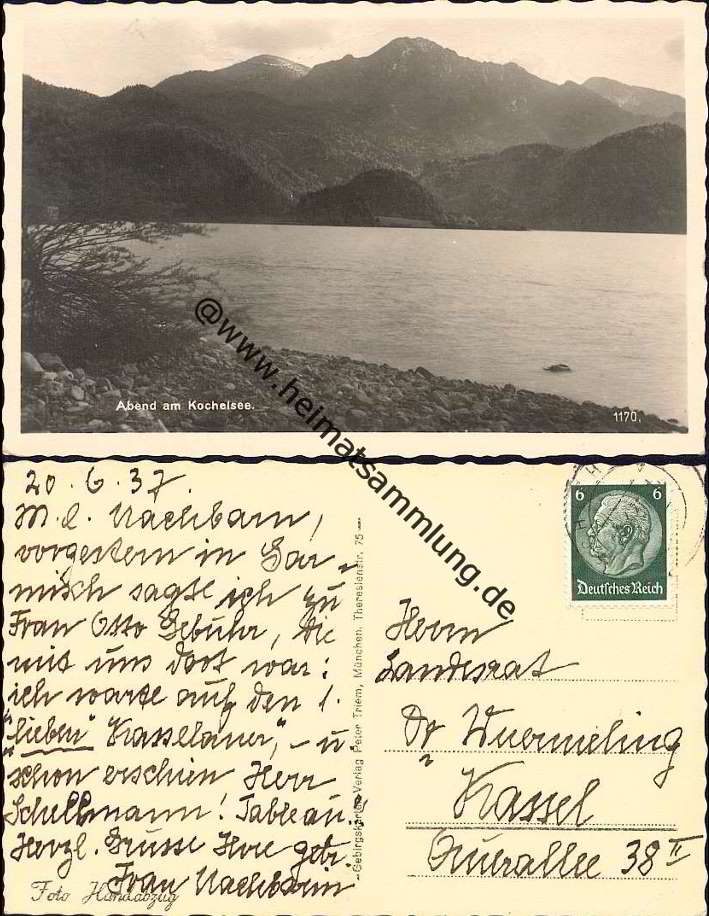 Abend am Kochelsee.
1170.
@www.heimatsammlung.de
20.6.37.
M. l. Nachbarn,
vorgestern in Gar-
misch sagte ich zu
Frau Otto Gebühr, die
mit uns dort war:
ich warte auf den 1.
"lieben" Kasselaner," - u.
schon erschien Herr
Schellmann! Tableau!
Herzl. Grüsse Ihre getr.
Frau Nachbarin
Foto Handabzug
Gebirgskarten-Verlag Peter Triem, München, Theresienstr. 75
6 6
Deutsches Reich
Herrn
Landesrat
Dr Wuermeling
Kassel
Querallee 38 II